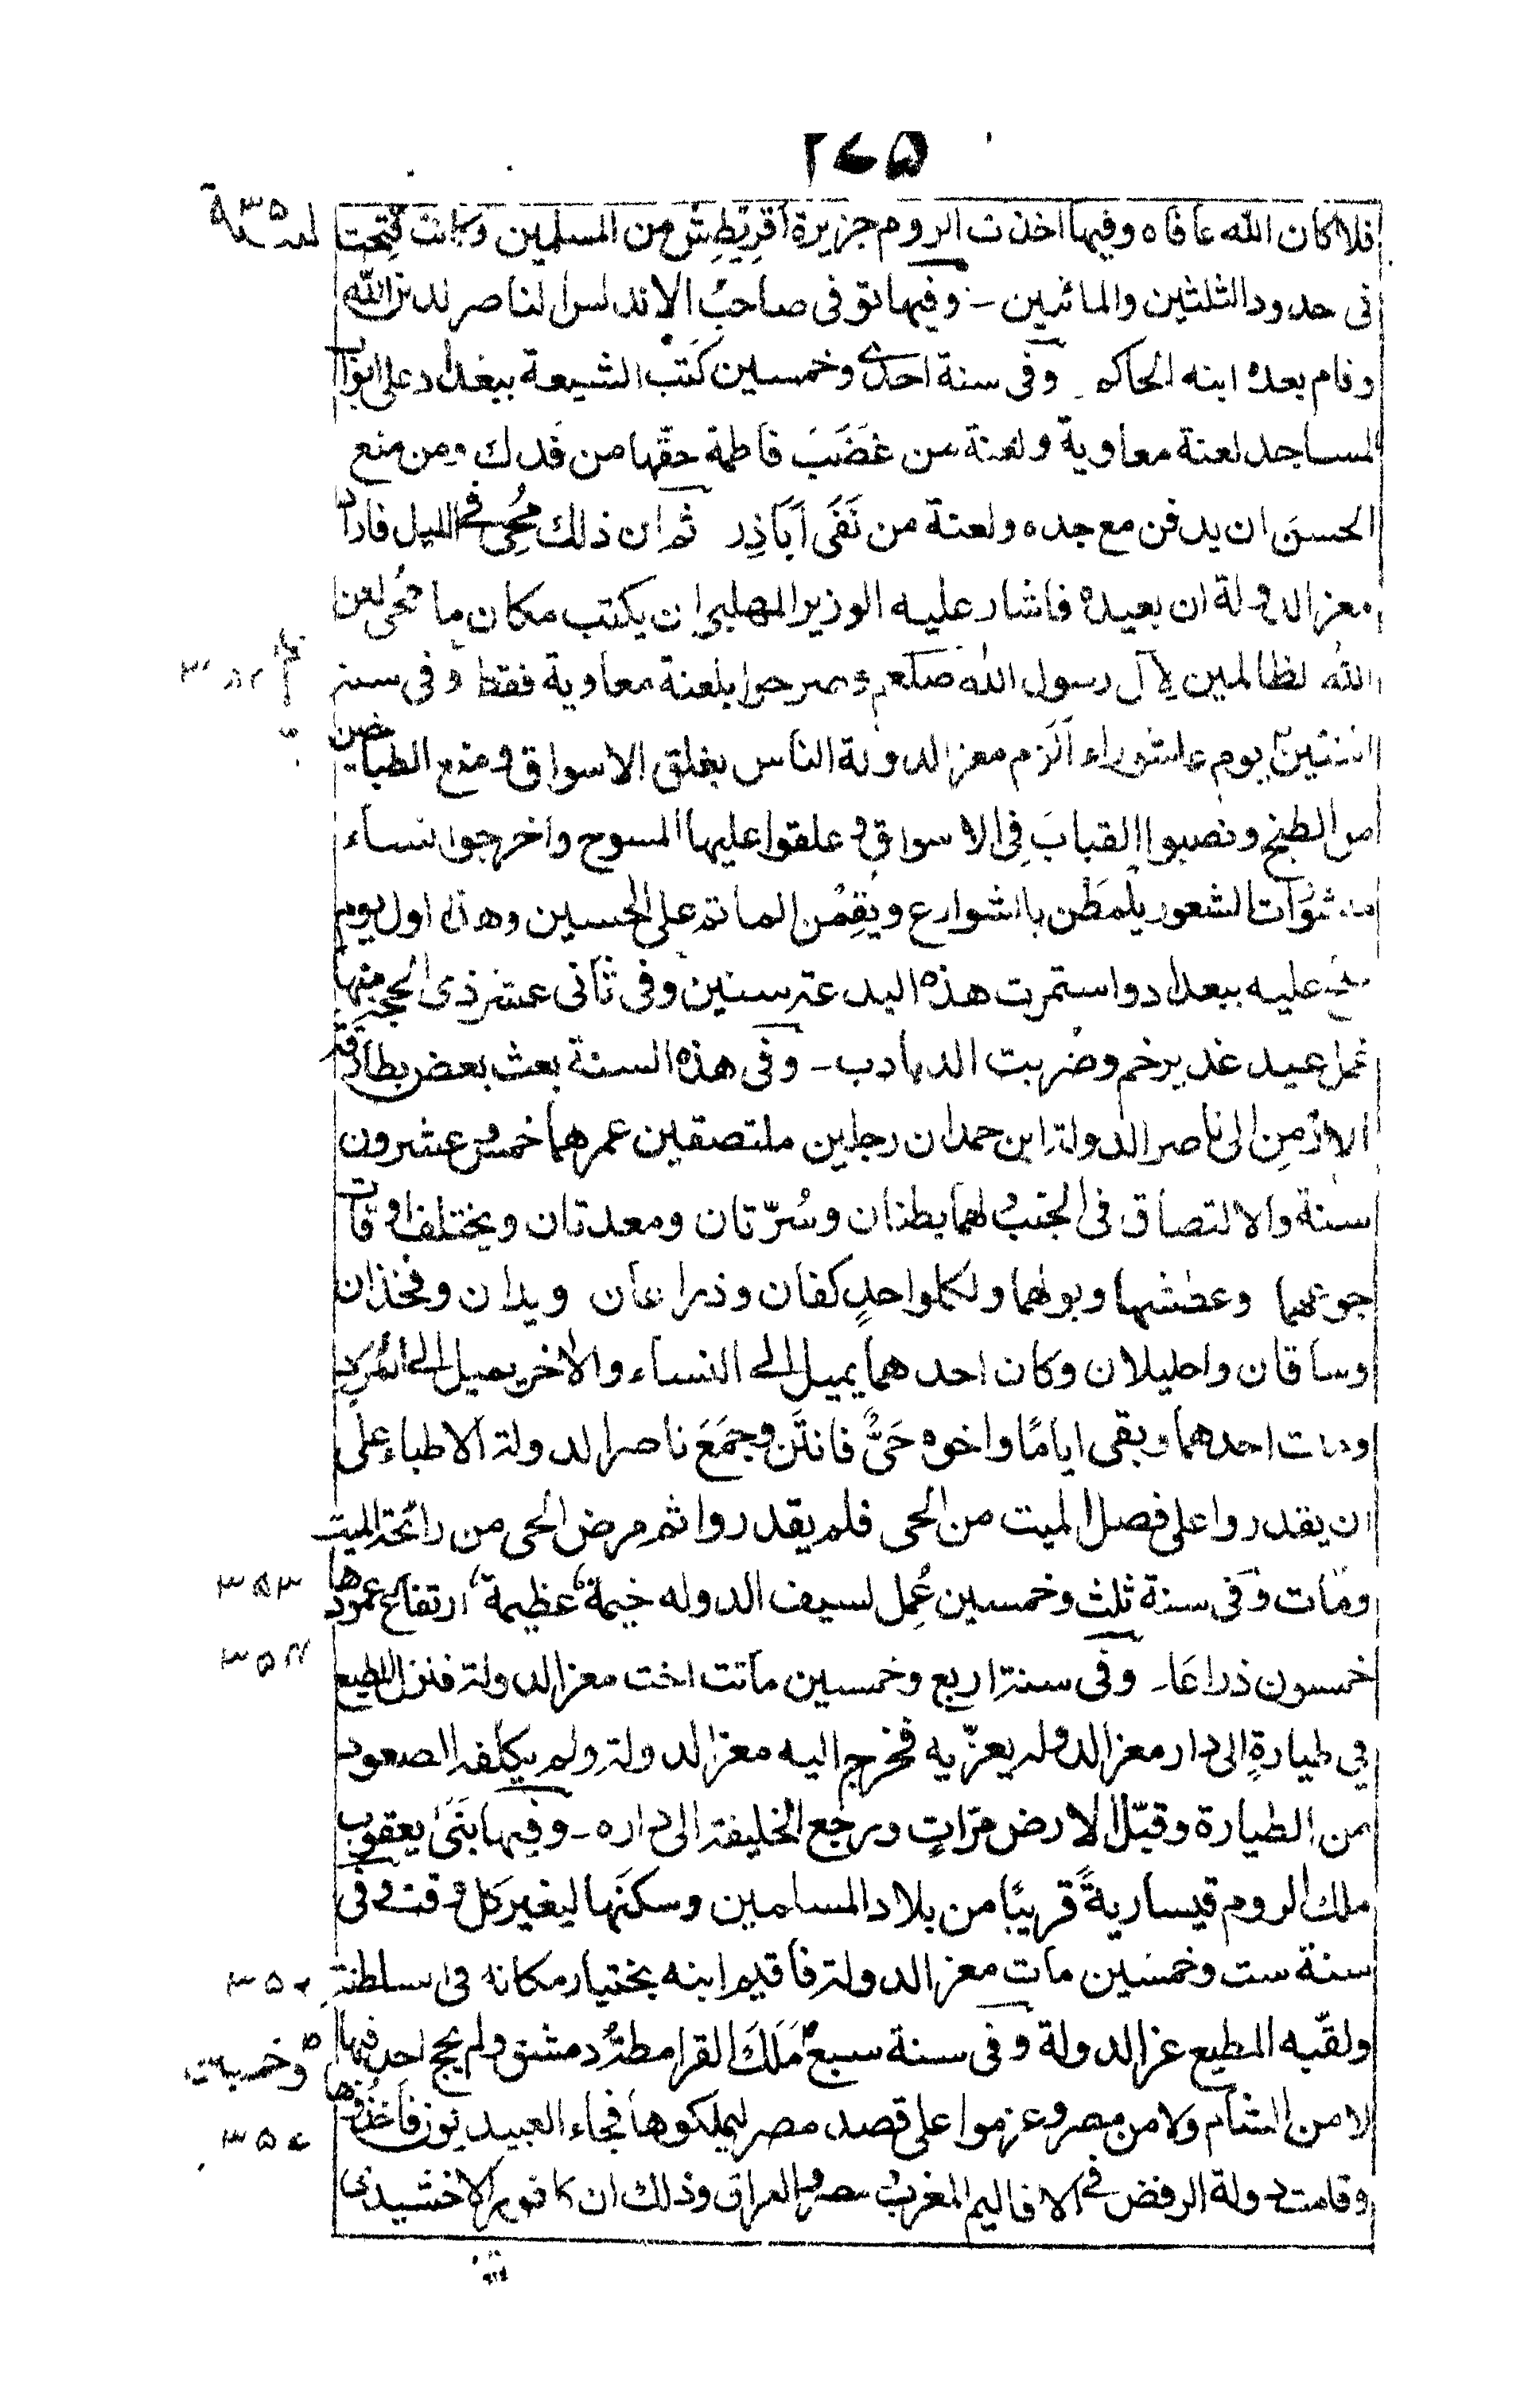 ٢٧٥
فلا كان الله عافاه وفيها اخذت الروم جزيرة اَقرِيْطِش من المسلمين وكانت فُتِحت
فى حدود الثلثين والمائتين - وفيها توفى صاحبُ الاندلس الناصر لدين الله
وقام بعده ابنه الحاكم وفى سنة احدى وخمسين كَتَب الشيعة ببغداد على ابواب
المساجد لعنة معاوية ولعنة من غَصَبَ فاطمة حقّها من فدك ومن منع
الحسنَ ان يدفن مع جده ولعنة من نَفَى اَبَاذِر ثم ان ذلك مُحِى فى الليل فاراد
معز الدولة ان يعيده فاشار عليه الوزير المهلبى ان يكتب مكان ما مُحى لعن
اللهُ الظالمين لِآل رسول الله صلعم وصرحوا بلعنة معاوية فقط وفى سنة
اثنتين يوم عاشوراء اَلْزم معز الدولة الناس بغلق الاسواق ومنع الطباخين
من الطبخ ونصبوا القبابَ فى الاسواق وعلقوا عليها المسوح واخرجوا نساء
منشورات الشعور يلطمن بالشوارع ويُقِمْن الماتم على الحسين وهذا اول يوم
نيح عليه ببغداد واستمرت هذه البدعة سنين وفى ثانى عشر ذى الحجة منها
عُمل عيد غدير خم وضُربت الدبادب - وفى هذه السنة بعث بعض بطارقة
الارمن الى ناصر الدولة ابن حمدان رجلين ملتصقين عمرهما خمس وعشرون
سنة والالتصاق فى الجنب ولهما بطنان وسُرّتان ومعدتان ويختلف اوقات
جوعهما وعطشهما وبولهما ولكل واحدٍ كفان وذراعان ويدان وفخذان
وساقان واحليلان وكان احدهما يميل الى النساء والاخر يميل الى المُرْدِ
ومات احدهما وبقى ايامًا واخوه حَىٌّ فانتَن وجَمَعَ ناصر الدولة الاطباء على
ان يقدروا على فصل الميت من الحى فلم يقدروا ثم مرض الحى من رائحة الميت
ومات وفى سنة ثلث وخمسين عُمِل لسيف الدوله خيمة عظيمة ارتفاع عمودها
خمسون ذراعًا - وفى سنة اربع وخمسين ماتت اخت معز الدولة فنزل المطيع
فى طيارةٍ الى دار معز الدولة يعزّيه فخرج اليه معز الدولة ولم يكلفه الصعود
من الطيارة وقبّل الارض مرّاتٍ ورجع الخليفة الى داره - وفيها بَنَى يعقوب
ملك الروم قيسارية قريبًا من بلاد المسلمين وسكنَها ليغير كل وقت وفى
سنة ست وخمسين مات معز الدولة فاقيم ابنه بختيار مكانه فى السلطنة
ولقّبه المطيع عز الدولة وفى سنة سبع مَلَكَ القرامطةُ دمشق ولم يحج احد فيها
لا من الشام ولا من مصر وعزموا على قصد مصر ليملكوها فجاء العبيديون فاخذوها
وقامت دولة الرفض فى الاقاليم المغرب ومصر والعراق وذلك ان كافور الاخشيدى
٣٥٣
٣٥٤
٣٥٦
وخمسين
٣٥٧